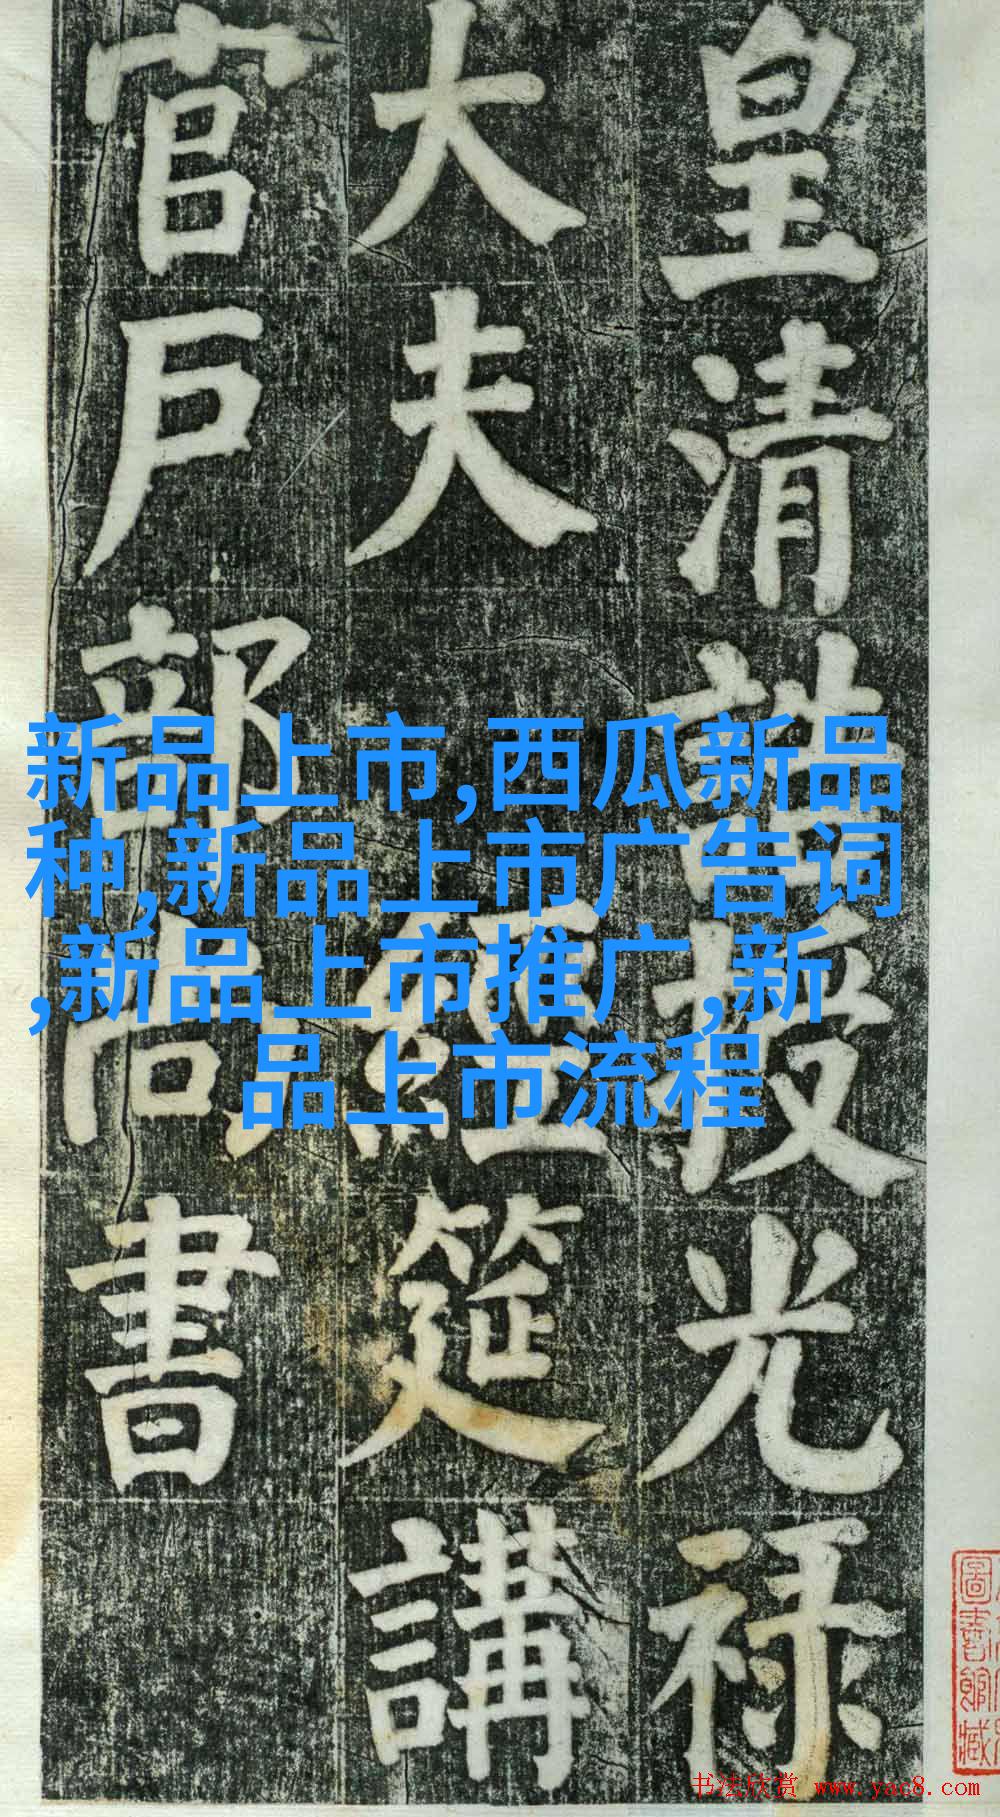 皇清誥授光禄
大夫經筵講
官戶部尚書
新品上市,西瓜新品
种,新品上市广告词
,新品上市推广,新
品上市流程
圖書館藏
书法欣赏 www.yac8.com